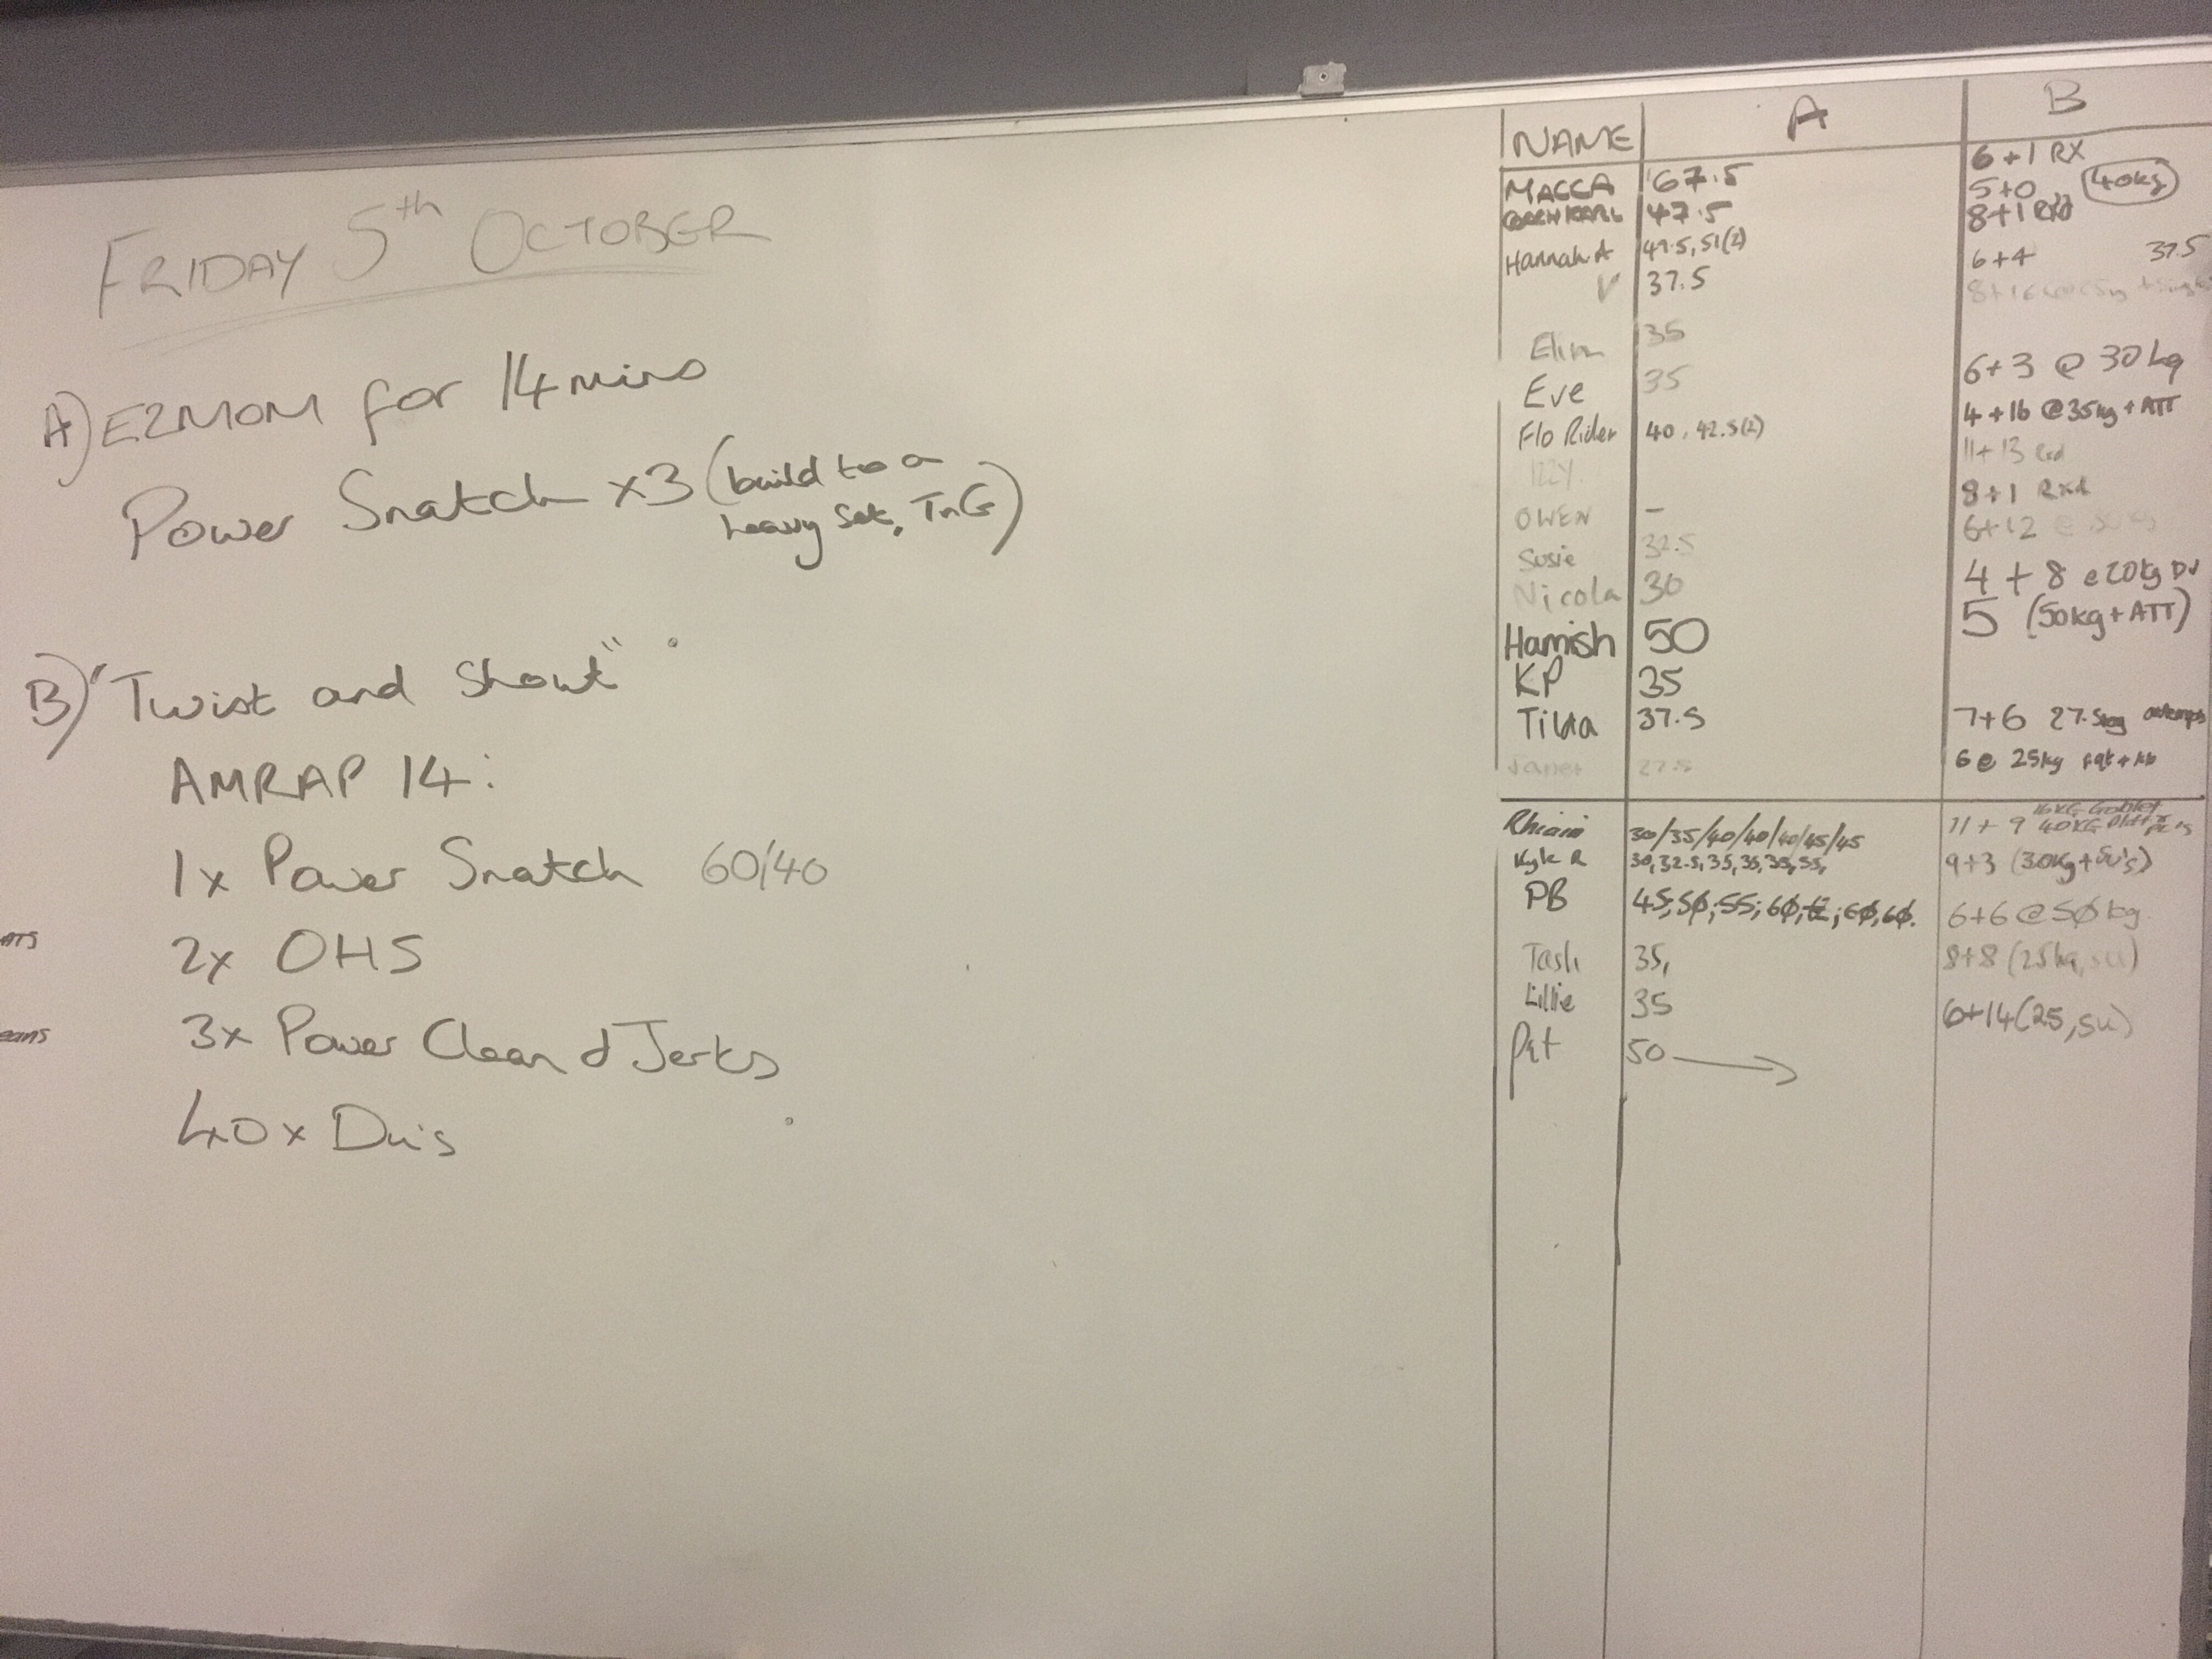 FRIDAY 5th OCTOBER
A) E2MOM for 14 mins
Power Snatch x3 (build to a
heavy set, TnG)
B) "Twist and Shout"
AMRAP 14:
1x Power Snatch 60/40
2x OHS
3x Power Clean & Jerks
40x Du's
NAME A B
MACCA 67.5 6+1 RX
47.5 5+0 40kg
Hannah A 49.5, 51(2) 8+1 RXd
V 37.5 6+4 37.5
35
Eve 35 6+3 @ 30kg
Flo Rider 40, 42.5(2) 4+16 @35kg + ATT
IZZY 11+13
OWEN - 8+1 Rxd
Susie 32.5 6+12
Nicola 30 4+8 @20kg DU
Hamish 50 5 (50kg + ATT)
KP 35
37.5 7+6 27.5kg attempts
27.5 6 @ 25kg
16KG Goblet
30/35/40/40/40/45/45 11+9 40KG
Kyle R 30, 32.5, 35, 35, 35, 35, 9+3 (30kg + SU's)
PB 45; 50; 55; 60; 60, 60. 6+6 @ 50kg
Tash 35, 8+8 (25kg, SU)
Lillie 35 6+14 (25, SU)
Pat 50 →